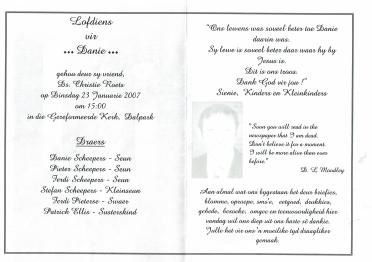 Lofdiens
vir
... Danie ...
gehou deur sy vriend,
Ds. Christie Roets
op Dinsdag 23 Januarie 2007
om 15:00
in die Gereformeerde Kerk, Dalpark
Draers
Danie Scheepers - Seun
Pieter Scheepers - Seun
Ferdi Scheepers - Seun
Stefan Scheepers - Kleinseun
Ferdi Pieterse - Swaer
Patrick Ellis - Susterskind
"Ons lewens was soveel beter toe Danie
daarin was.
Sy lewe is soveel beter daar waar hy by
Jesus is.
Dit is ons troos.
Dank God vir jou !"
Sienie, Kinders en Kleinkinders
"Soon you will read in the
newspaper that I am dead.
Don't believe it for a moment.
I will be more alive than ever
before."
D. L. Moodley
Aan almal wat ons bygestaan het deur briefies,
blomme, oproepe, sms'e, eetgoed, drukkies,
gebede, besoeke, omgee en teenwoordigheid hier
vandag wil ons diep uit ons harte sê dankie.
Julle het vir ons 'n moeilike tyd draagliker
gemaak.